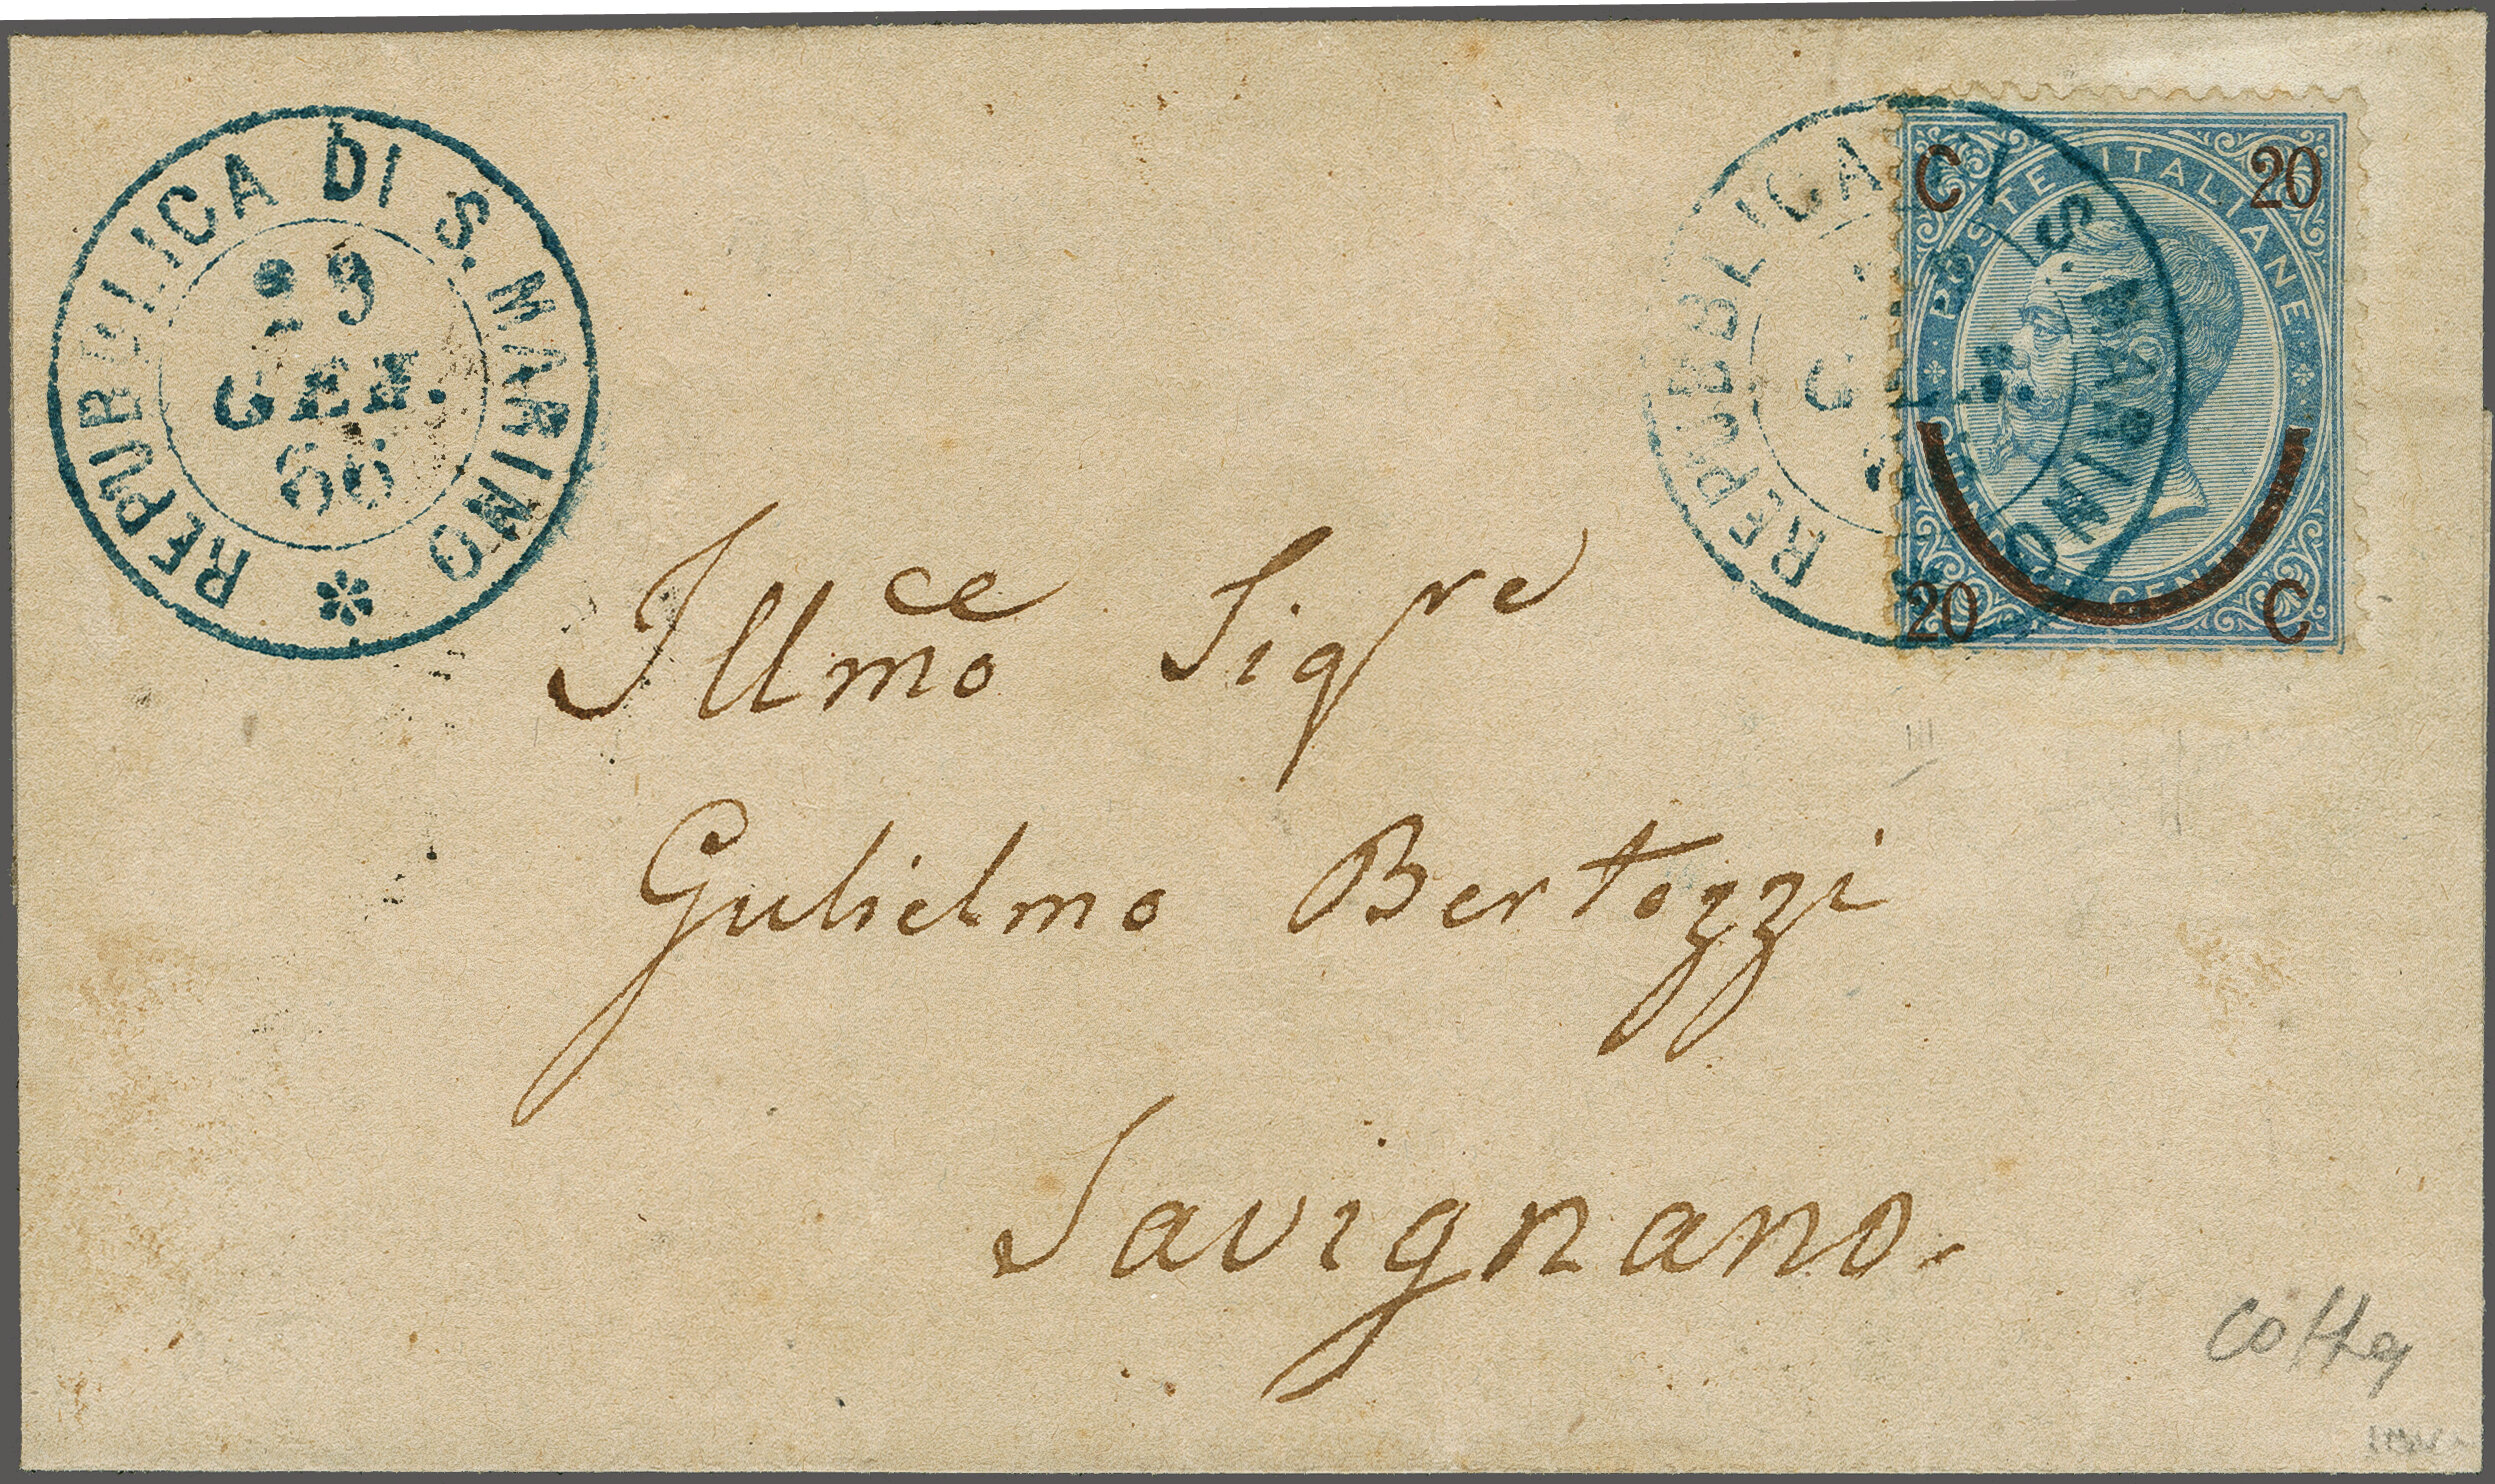 REPUBBLICA DI S. MARINO
29
GEN.
66
REPUBBLICA DI S. MARINO
C 20
POSTE ITALIANE
20 C
Illmo ce Sigre
Gulielmo Bertozzi
Savignano.